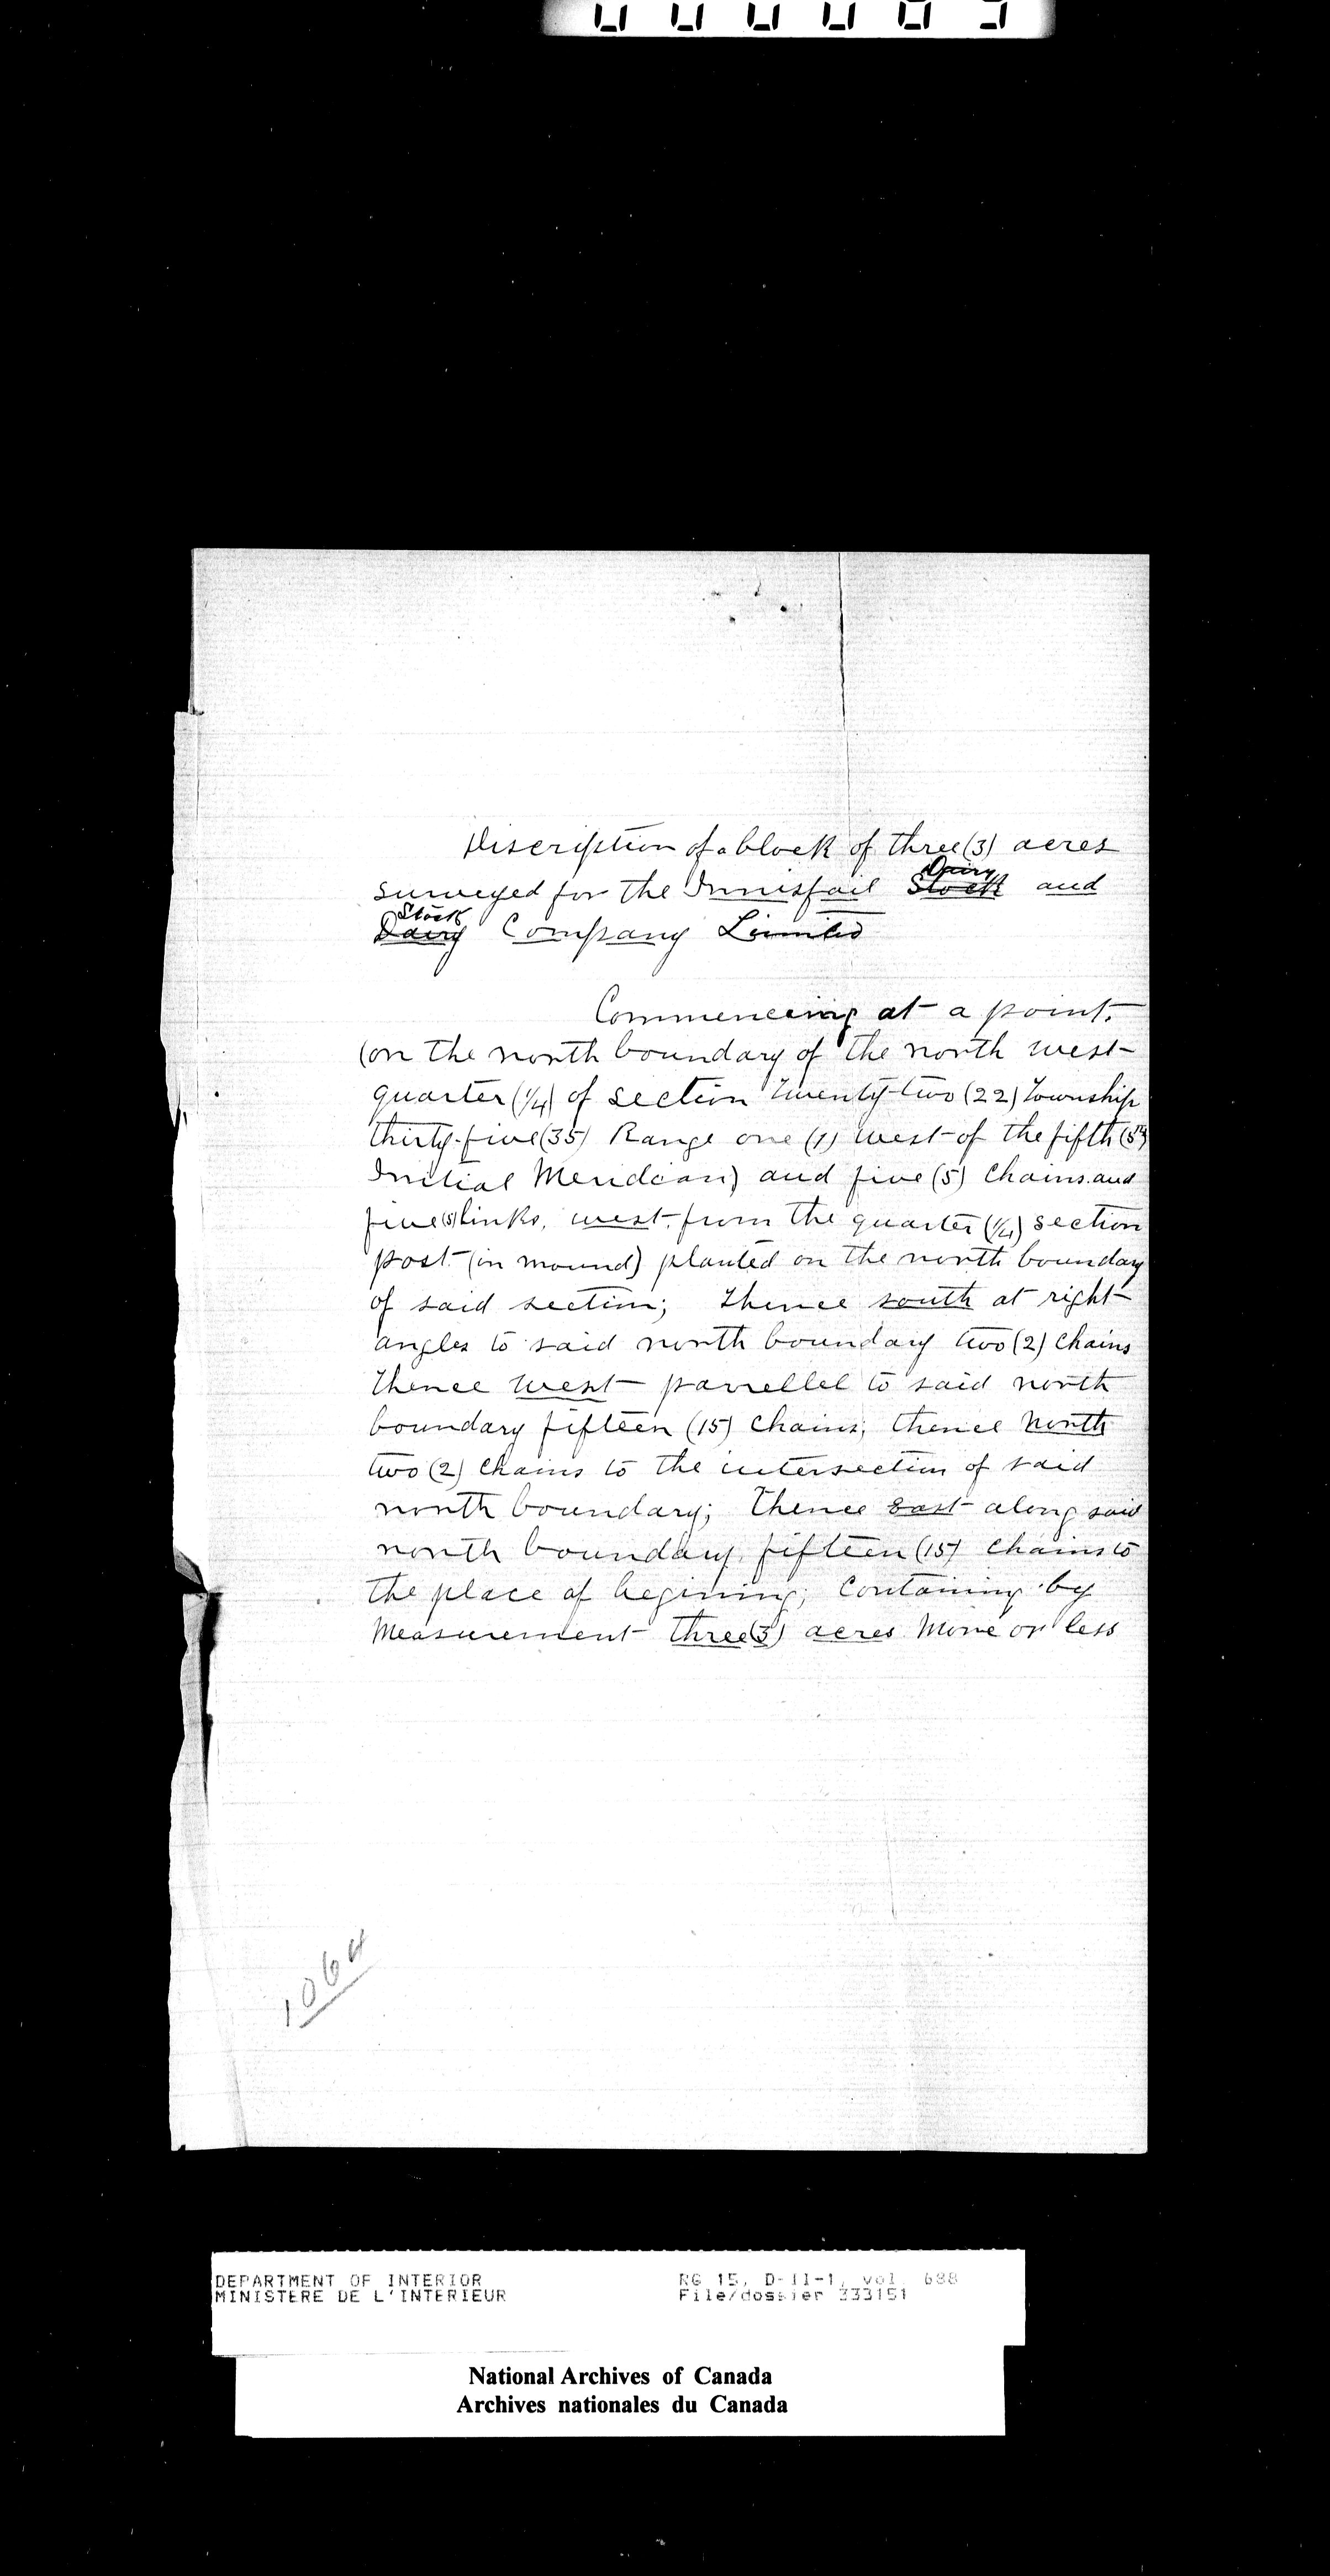 Discription of a block of three (3) acres
surveyed for the Innisfail Stock Dairy and
Dairy Stock Company Limited
Commenceing at a point.
(on the north boundary of the north west
quarter (1/4) of section Twenty-two (22) Township
thirty-five (35) Range one (1) west of the fifth (5th)
Initial Meridian) and five (5) chains and
five (5) links, west, from the quarter (1/4) section
post (in mound) planted on the north boundary
of said section; Thence south at right
angles to said north boundary two (2) chains
Thence West parrellel to said north
boundary fifteen (15) chains; thence North
two (2) chains to the intersection of said
north boundary; Thence East along said
north boundary fifteen (15) chains to
the place of begining; Containing by
Measurement three (3) acres More or less
1064
DEPARTMENT OF INTERIOR
MINISTERE DE L'INTERIEUR
RG 15, D-II-1, vol. 688
File/dossier 333151
National Archives of Canada
Archives nationales du Canada